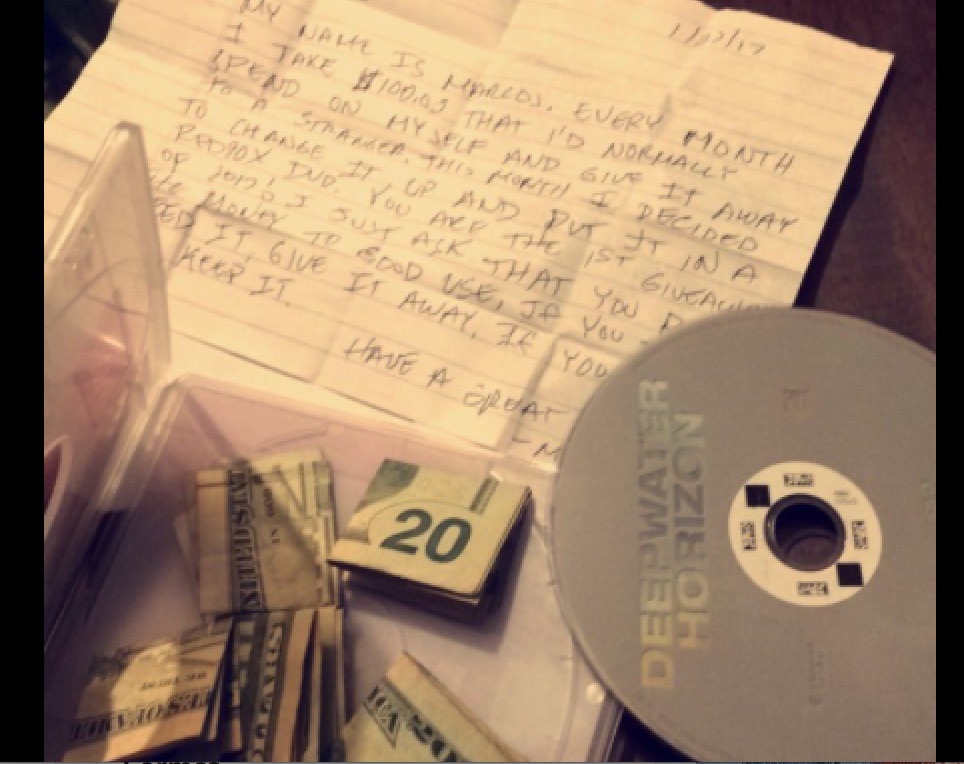 MY NAME IS MARCOS. EVERY MONTH
I TAKE $100.00 THAT I'D NORMALLY
SPEND ON MYSELF AND GIVE IT AWAY
TO A STRANGER. THIS MONTH I DECIDED
TO CHANGE IT UP AND PUT IT IN A
REDBOX DVD. YOU ARE THE 1ST GIVEAWAY
OF 2017! I JUST ASK THAT YOU
THE MONEY TO GOOD USE, IF YOU
IT, GIVE IT AWAY. IF YOU
KEEP IT.
HAVE A GREAT
DEEPWATER
HORIZON
20
UNITED STAT
IN GOD
WE TRUST
TES OF AMER
LLARS
ICA
20